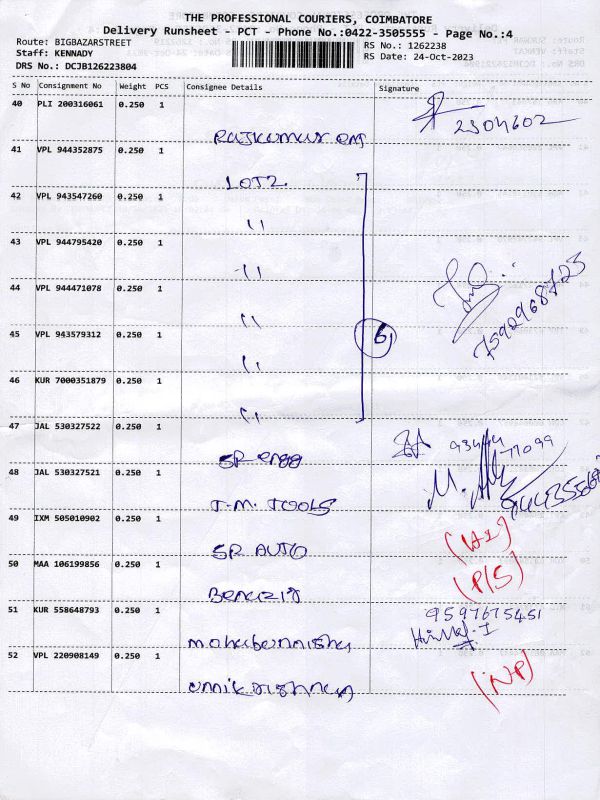 THE PROFESSIONAL COURIERS, COIMBATORE
Delivery Runsheet - PCT - Phone No.:0422-3505555 - Page No.:4
Route: BIGBAZARSTREET
Staff: KENNADY
DRS No.: DCJB126223804
RS No.: 1262238
RS Date: 24-Oct-2023
S No Consignment No Weight PCS Consignee Details Signature
40 PLI 200316061 0.250 1
Rajkumar eng 2304602
41 VPL 944352875 0.250 1
LOTZ
42 VPL 943547260 0.250 1
"
43 VPL 944795420 0.250 1
"
44 VPL 944471078 0.250 1
" 7592968723
45 VPL 943579312 0.250 1
" 6
46 KUR 7000351879 0.250 1
"
47 JAL 530327522 0.250 1
SR engg
48 JAL 530327521 0.250 1
T.M. TOOLS
49 IXM 505010902 0.250 1
SR AUTO
50 MAA 106199856 0.250 1
(P/S)
51 KUR 558648793 0.250 1
9597675451
52 VPL 220908149 0.250 1
(NP)